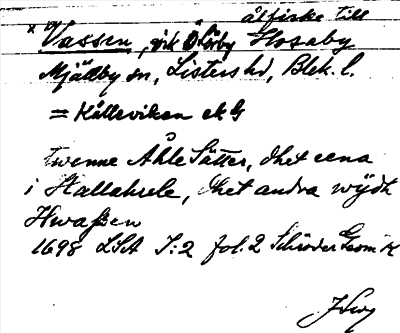 ålfiske till
× Vassen, vik Lörby Hosaby
Mjällby sn, Listers hd, Blek. l.
= Kålleviken ek G
twenne Åhle Sätter, dhet eena
i Hallahule, dhet andra wijdh
Hwaßen
1698 LSA I:2 fol. 2 Schröder Geom K